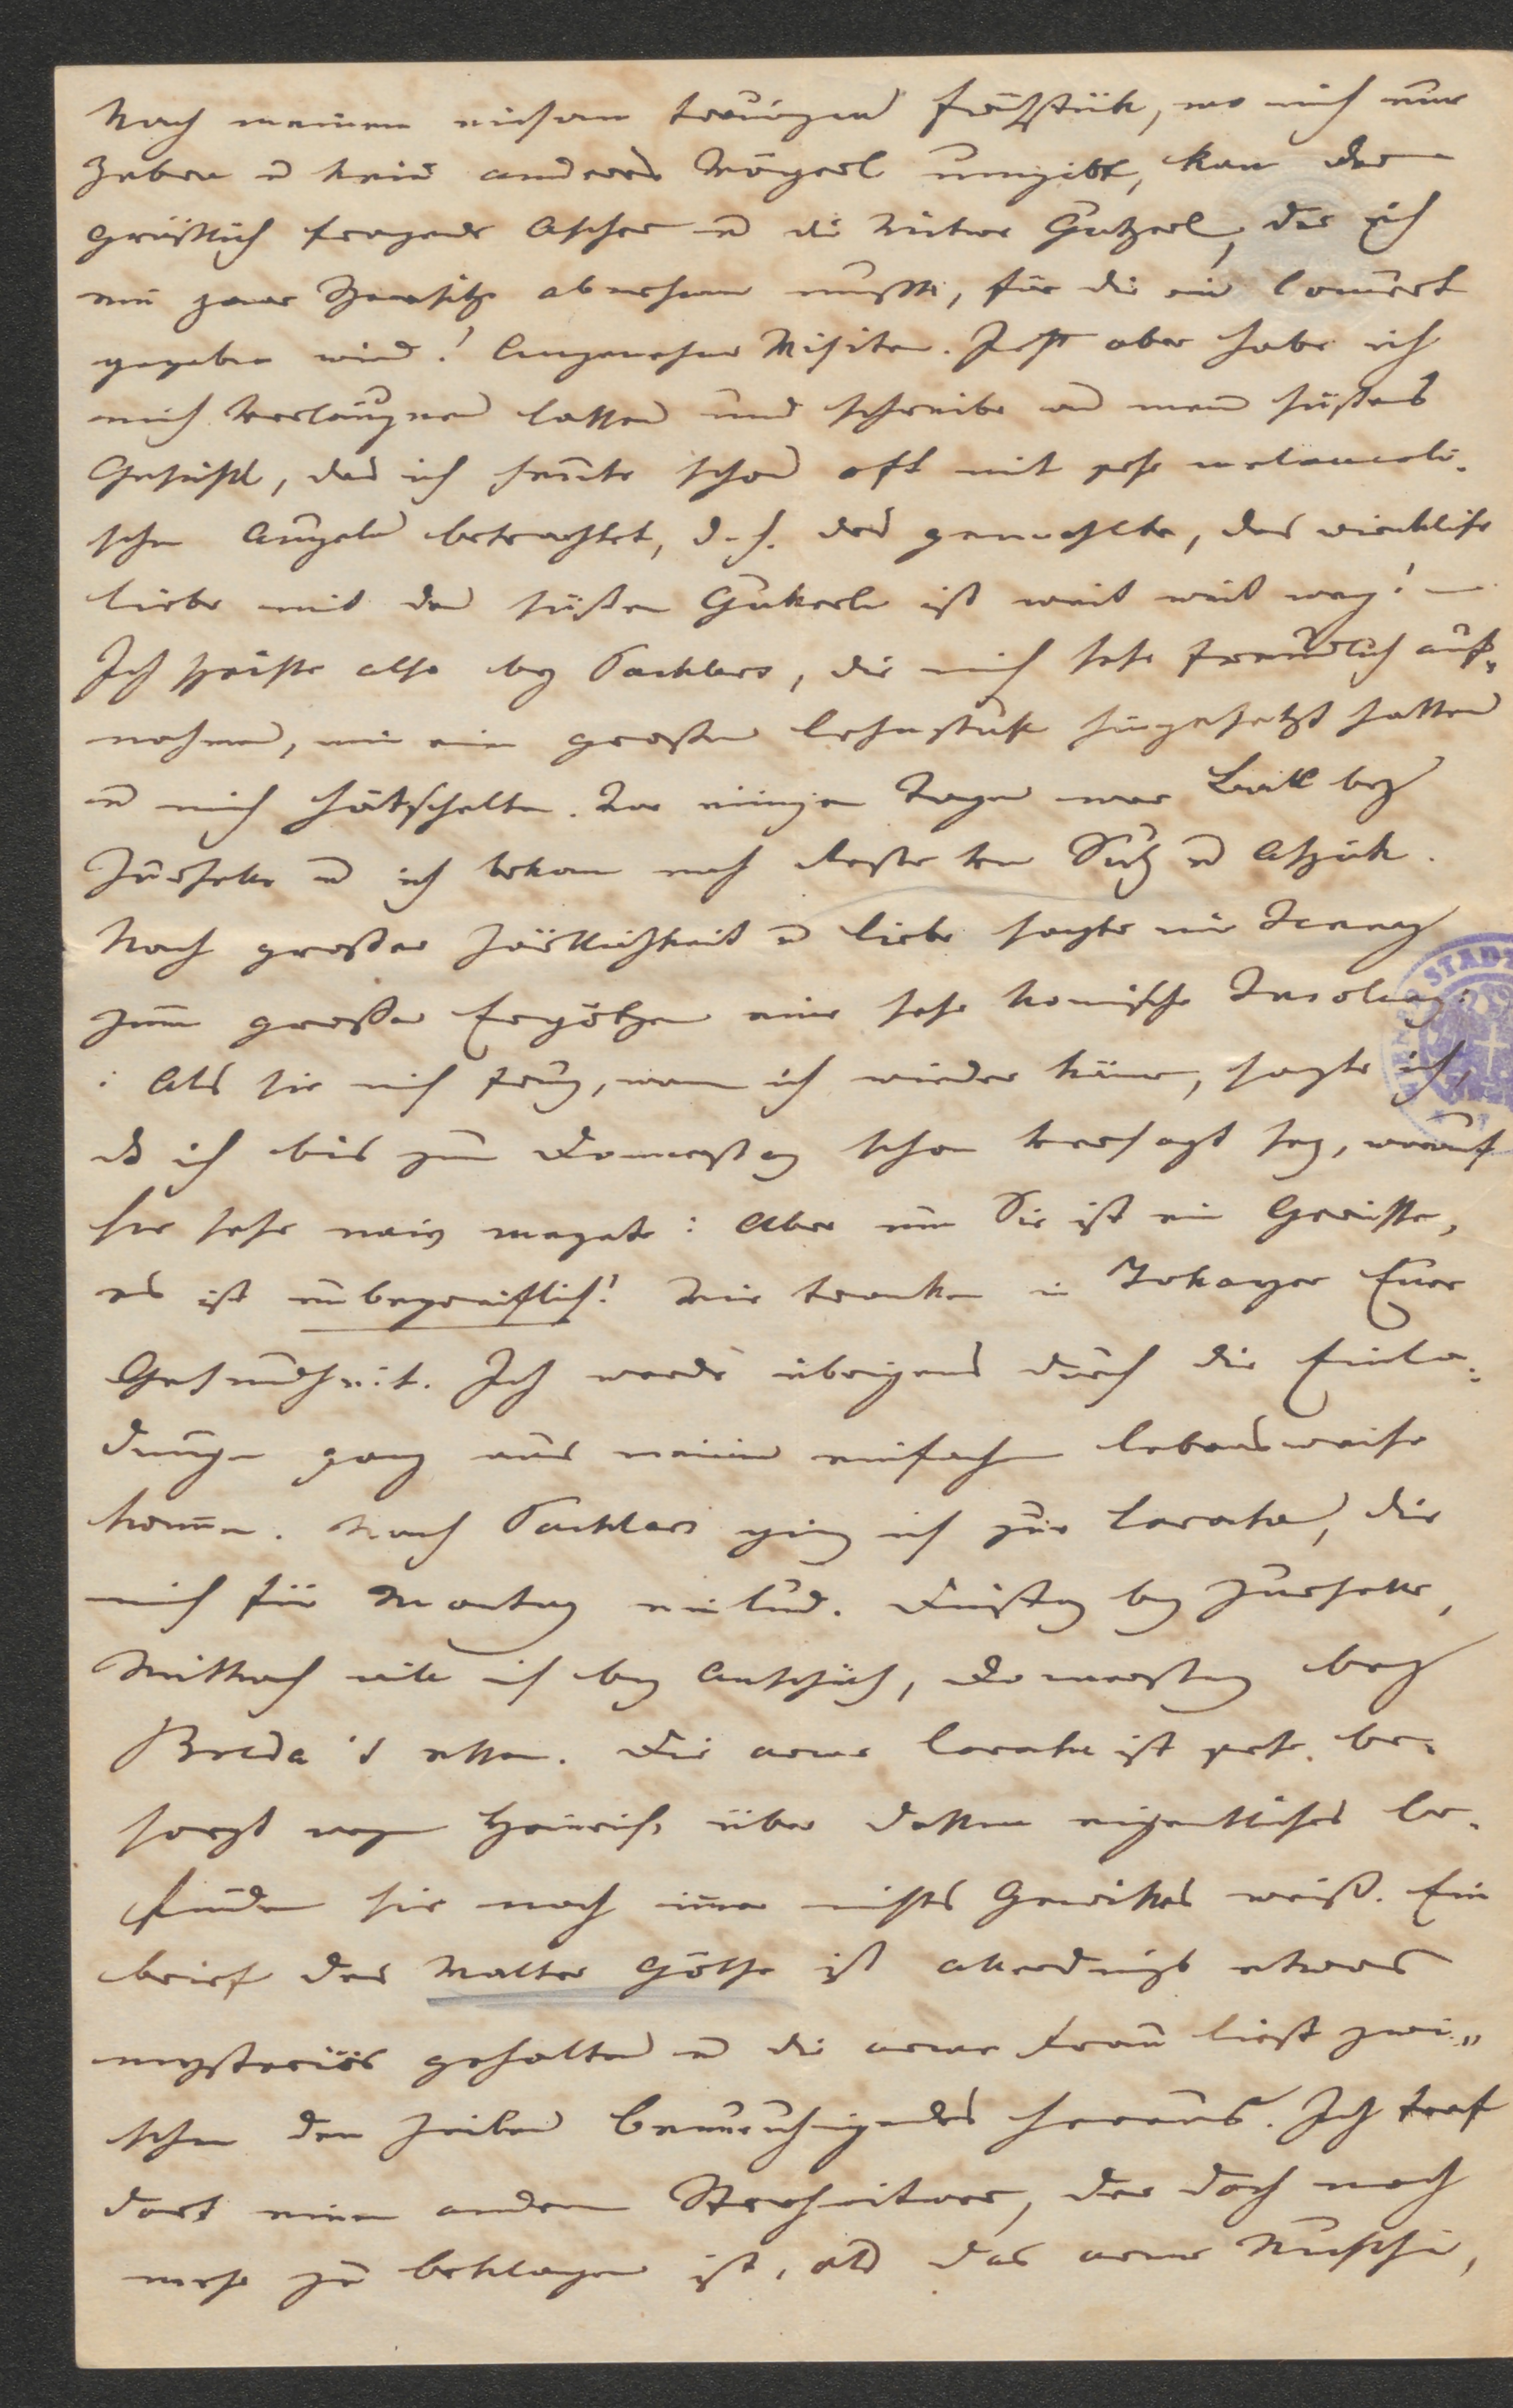 Nach meinem einsam traurigen Frühstük, wo mich nur
Zebra u kein anderes Vögerl umgibt, kam der
gräßlich fragende Ascher u die Witwe Gutzerl, der ich
ein paar Sperrsitze abnehmen mußte, für die ein Concert
gegeben wird! Angenehme Visiten. Jezt aber habe ich
mich verläugnen lassen und schreibe an mein süßes
Gesichtl, das ich heute schon oft mit sehr melancoli-
schen Augeln betrachtet, d. h. das gemahlte, das wirkliche
liebe mit den süßen Gukerln ist weit weit weg! —
Ich speiste also bey Pachlers, die mich sehr freundlich auf-
nahmen, mir ein großen Lehnstuhl hingesetzt hatten
u mich hätschelten. Vor einigen Tagen war Ball bey
u ich bekam noch Reste von Sulz u Aspik.
Nach großer Zärtlichkeit u Liebe sagte mir Jenny
zum großen Ergötzen eine sehr komische
: Als sie mich frug, wann ich wieder käme, sagte ich,
daß ich bis zum Donnerstag schon versagt sey, worauf
sie sehr naiv sagte: Aber um Sie ist ein Gereiße,
es ist unbegreiflich! Wir tranken in Tokayer Eure
Gesundheit. Ich werde übrigens durch die Einla-
dungen ganz aus meiner einfachen Lebensweise
kommen. Nach Pachlers ging ich zur Baronin, die
mich für Montag einlud. Dienstag bey
Mittwoch will ich bey Anschütz, Donnerstag bey
Breda's essen. Die arme ist sehr be-
sorgt wegen Heinrich, über dessen eigentliches Be-
finden sie noch immer nichts Gewisses weiß. Ein
Brief des Walter Göthe ist allerdings etwas
mysteriös gehalten u die arme Frau liest zwi-
schen den Zeilen Beunruhigendes heraus. Ich traf
dort einen andern Strohwitwer, der doch noch
mehr zu beklagen ist, als das arme Muschi,